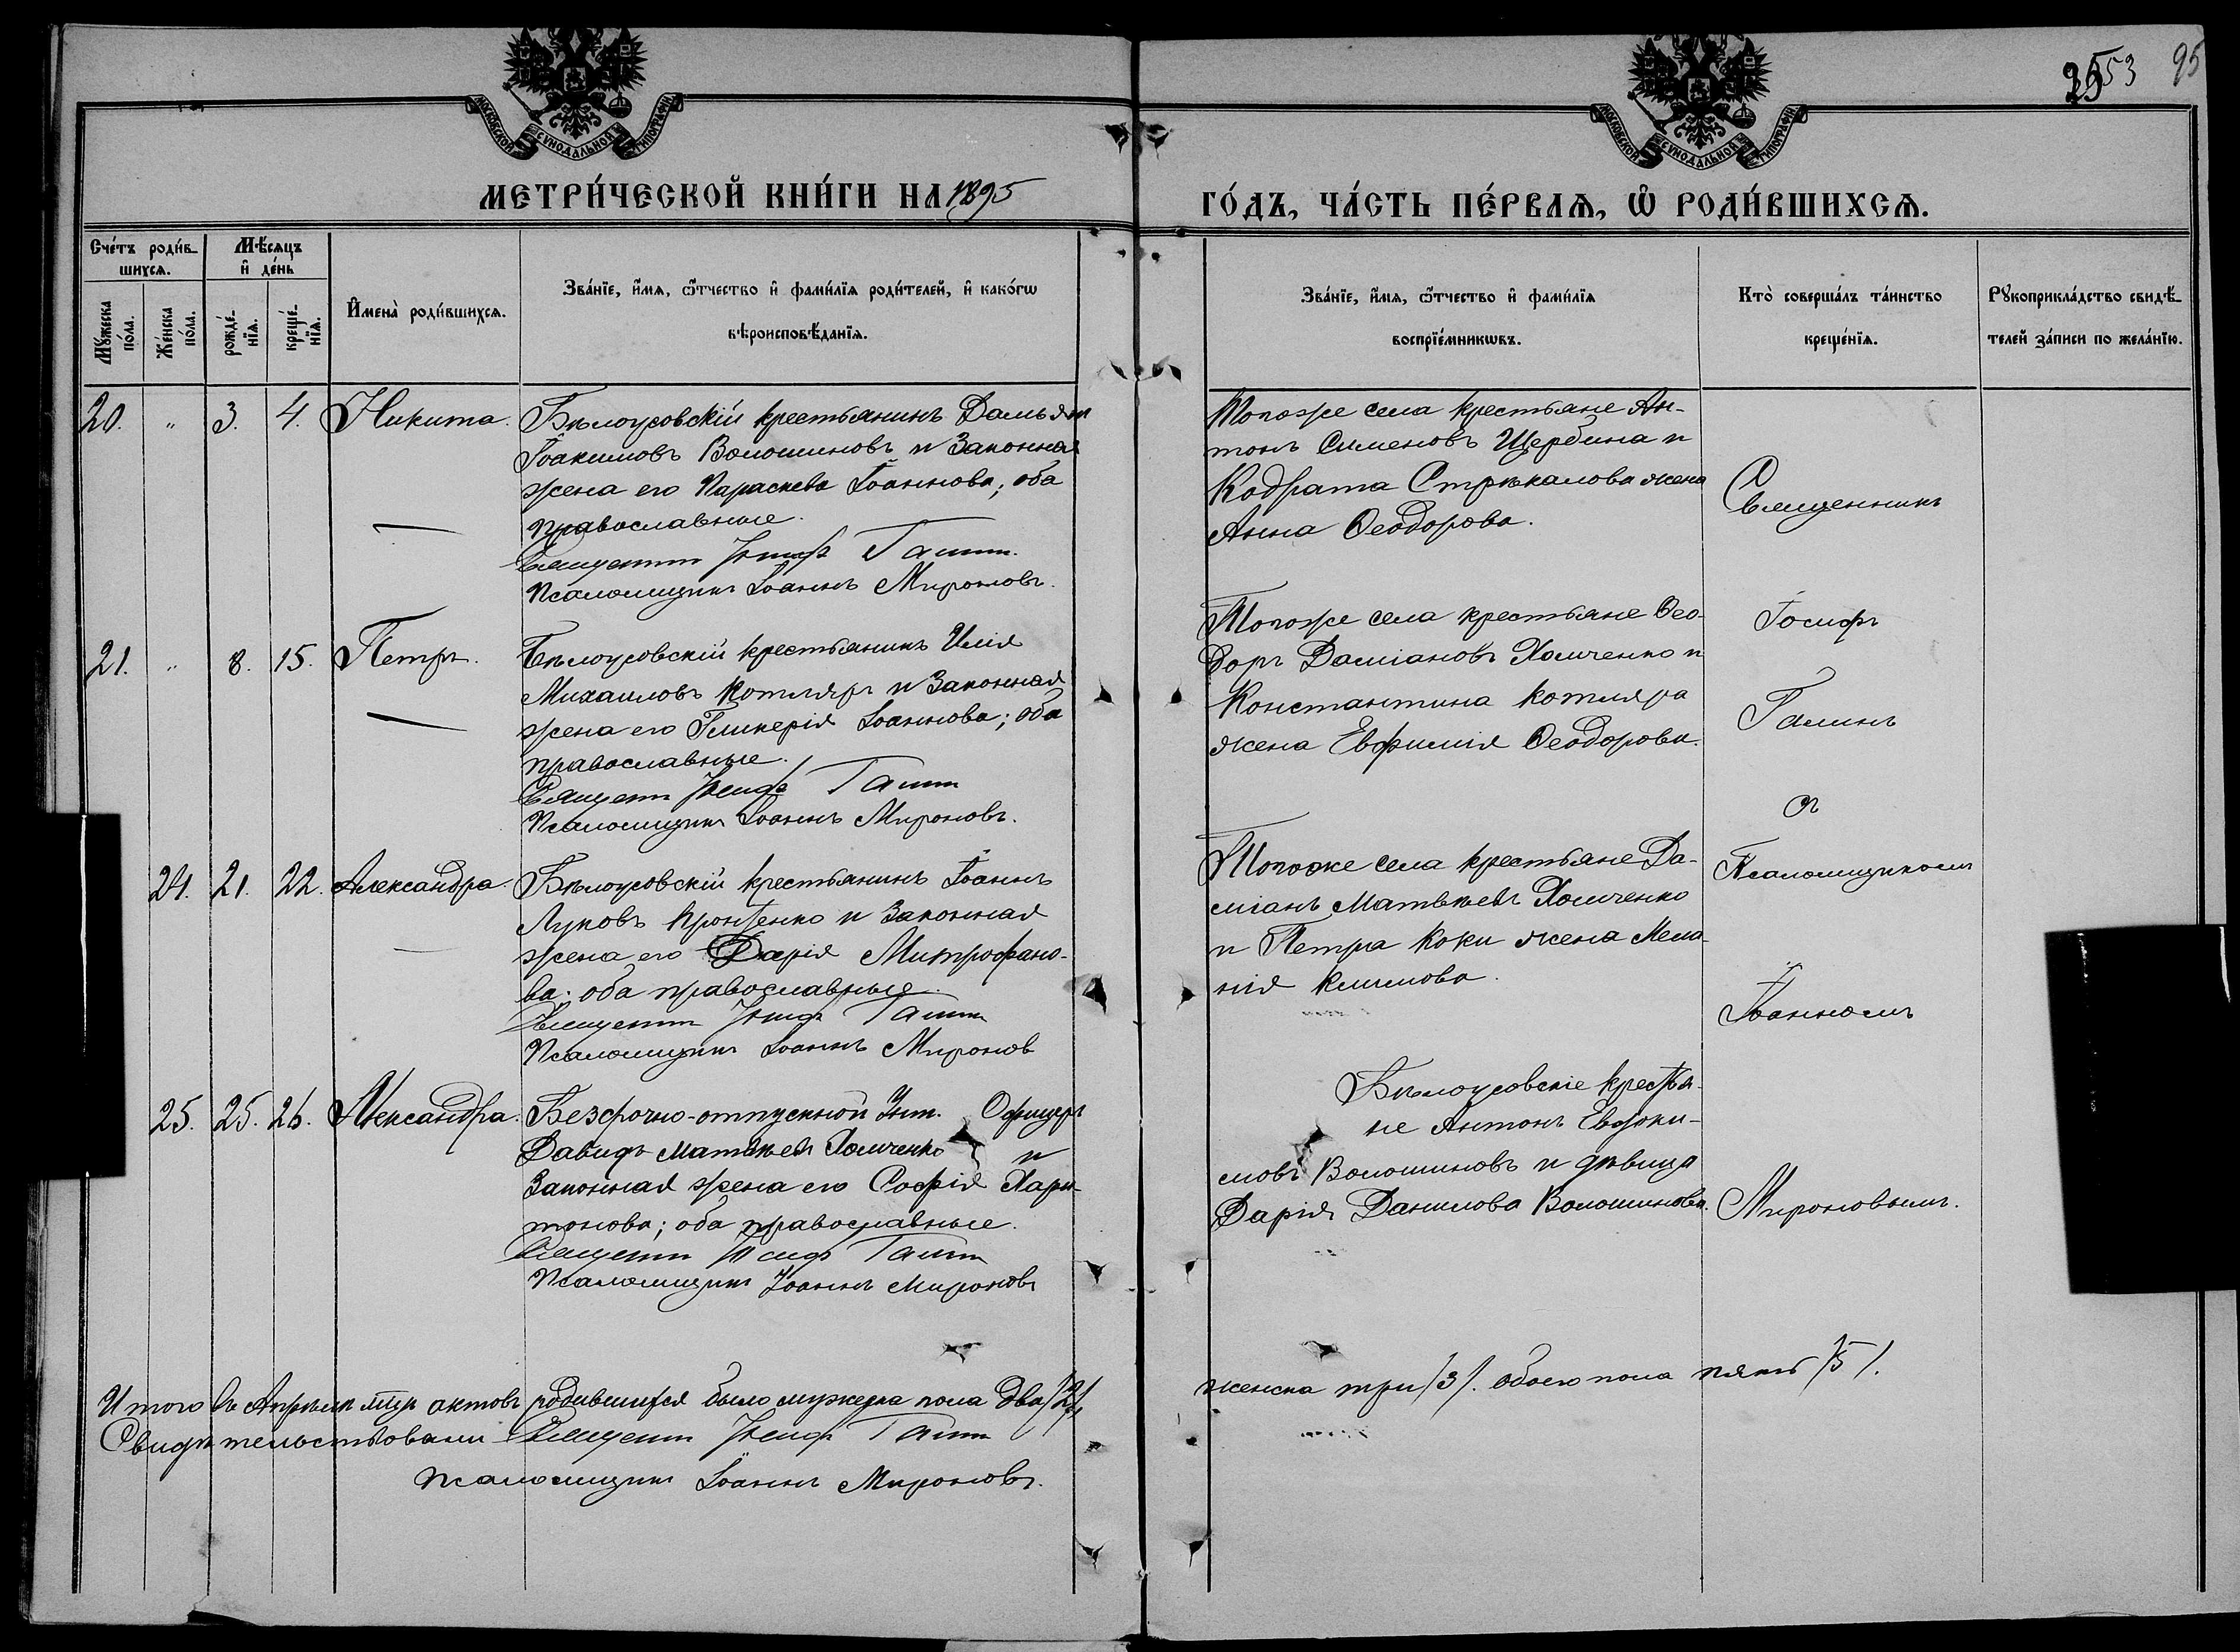 553 95
25
МОСКОВСКОЙ СѴНОДАЛЬНОЙ ТИПОГРАФІИ
МОСКОВСКОЙ СѴНОДАЛЬНОЙ ТИПОГРАФІИ
МЕТРИ́ЧЕСКОЙ КНИ́ГИ НА 1895
ГО́ДЪ, ЧА́СТЬ ПЕ́РВАѦ, Ѡ҆ РОДИ́ВШИХСѦ.
Сче́тъ роди́в-
шихсѧ.
Мѣ́сѧцъ
и҆ де́нь
Мꙋ́жеска
по́ла.
Же́нска
по́ла.
рожде́-
нїѧ.
креще́-
нїѧ.
И҆мена̀ роди́вшихсѧ.
Зва́нїе, и҆́мѧ, ѻ҆́тчество и҆ фами́лїѧ роди́телей, и҆ како́гѡ
вѣроисповѣ́данїѧ.
Зва́нїе, и҆́мѧ, ѻ҆́тчество и҆ фами́лїѧ
воспрїе́мникѡвъ.
Кто̀ соверша́лъ та́инство
креще́нїѧ.
Рꙋкоприкла́дство свидѣ́-
телей за́писи по жела́нїю.
20. " 3. 4. Никита. Бѣлоусовскій крестьянинъ Дамьян
Іоакимовъ Волошиновъ и законная
жена его Параскева Іоаннова; оба
православные.
Священник Іосиф Галин.
Псаломщикъ Іоаннъ Мироновъ.
Тогоже села крестьяне Ан-
тонъ Сименовъ Щербина и
Кодрата Стрѣкалова жена
Анна Ѳеодорова.
Священникъ
21. " 8. 15. Петръ. Бѣлоусовскій крестьянинъ Илія
Михаиловъ Котляръ и законная
жена его Гликерія Іоаннова; оба
православные.
Священник Іосиф Галин
Псаломщикъ Іоаннъ Мироновъ.
Тогоже села крестьяне Ѳео-
доръ Даміановъ Хомченко и
Константина Котляра
жена Евфимія Ѳеодорова.
Іосифъ
Галинъ
съ
24. 21. 22. Александра. Бѣлоусовскій крестьянинъ Іоаннъ
Луковъ Кротенко и законная
жена его Дарія Митрофано-
ва; оба православные.
Священник Іосиф Галин
Псаломщикъ Іоаннъ Миронов
Тогоже села крестьяне Да-
міанъ Матвѣевъ Хомченко
и Петра Коки жена Мела-
нія Климова.
Псаломщикомъ
Іоанномъ
25. 25. 26. Александра. Безсрочно-отпускной Унт. Офицеръ
Давидъ Матвѣевъ Хомченко и
законная жена его Софія Хари-
тонова; оба православные.
Священник Іосиф Галин
Псаломщикъ Іоаннъ Мироновъ
Бѣлоусовскіе крестья-
не Антонъ Евдоки-
мовъ Волошиновъ и дѣвица
Дарія Данилова Волошинова.
Мироновымъ.
Итого въ Апрѣлѣ мцѣ актовъ родившихся было мужеска пола два /2/
женска три /3/. обоего пола пять /5/.
Свидѣтельствовали Священник Іосиф Галин
Псаломщикъ Іоаннъ Мироновъ.